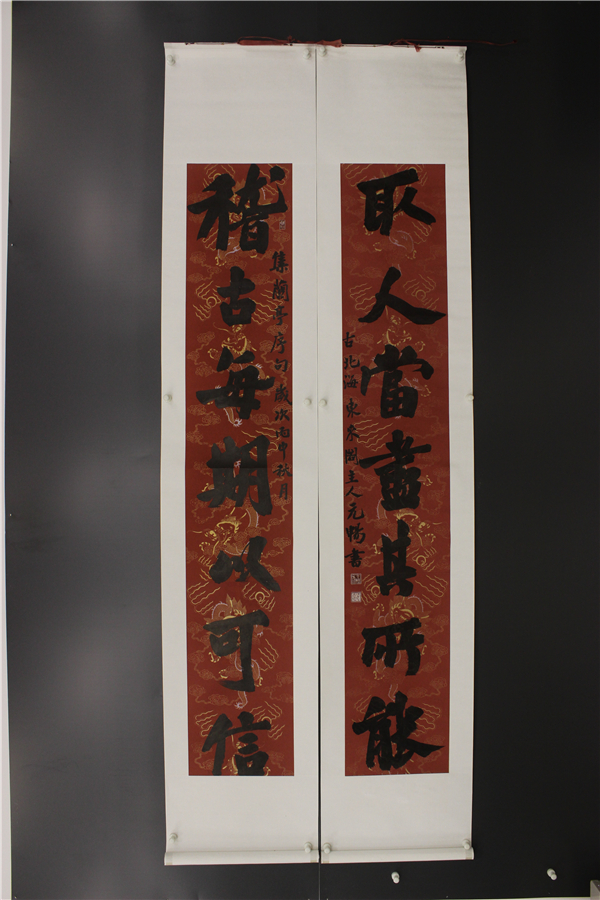 取人當盡其所能
古北海東泉閣主人元書
集蘭亭序句歲次丙申秋月
稽古每期以可信